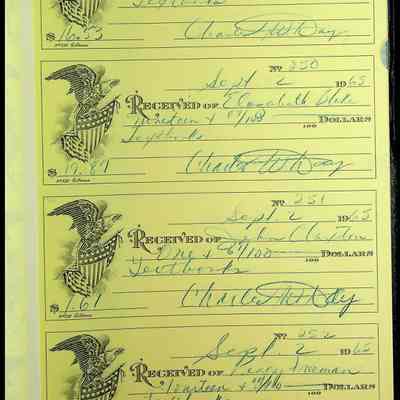 Textbooks
$ 16.53 Charles W Day
No 250
Sept 2 1965
RECEIVED OF Elizabeth
+ 87/100 DOLLARS
Textbooks
$ 17.87 Charles W Day
No 251
Sept. 2 1965
RECEIVED OF John Clayton
One + 67/100 DOLLARS
Textbooks
$ 1.67 Charles W Day
No 252
Sept. 2 1965
RECEIVED OF Percy Freeman
Fourteen + DOLLARS